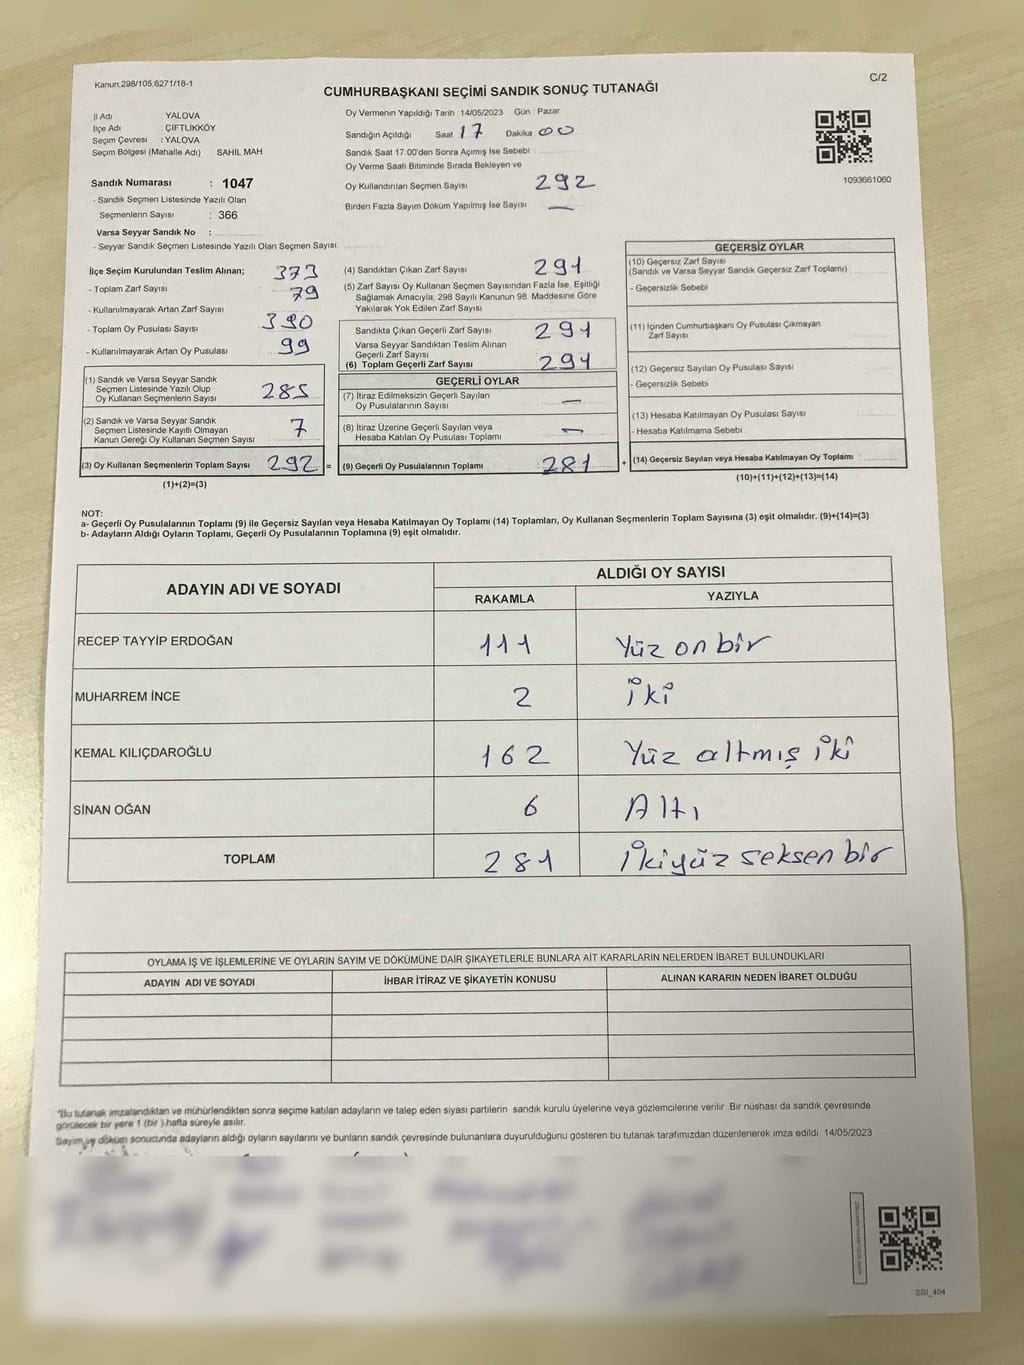 Kanun:298/105,6271/18-1
C/2
CUMHURBAŞKANI SEÇİMİ SANDIK SONUÇ TUTANAĞI
İl Adı YALOVA
İlçe Adı ÇİFTLİKKÖY
Seçim Çevresi : YALOVA
Seçim Bölgesi (Mahalle Adı) SAHİL MAH
Sandık Numarası : 1047
- Sandık Seçmen Listesinde Yazılı Olan
Seçmenlerin Sayısı : 366
Varsa Seyyar Sandık No :
- Seyyar Sandık Seçmen Listesinde Yazılı Olan Seçmen Sayısı:
Oy Vermenin Yapıldığı Tarih : 14/05/2023 Gün : Pazar
Sandığın Açıldığı Saat 17 Dakika 00
Sandık Saat 17:00'den Sonra Açımış İse Sebebi
Oy Verme Saati Bitiminde Sırada Bekleyen ve
Oy Kullandırılan Seçmen Sayısı 292
Birden Fazla Sayım Döküm Yapılmış İse Sayısı —
1093661060
İlçe Seçim Kurulundan Teslim Alınan;
373
- Toplam Zarf Sayısı
79
- Kullanılmayarak Artan Zarf Sayısı
390
- Toplam Oy Pusulası Sayısı
99
- Kullanılmayarak Artan Oy Pusulası
(1) Sandık ve Varsa Seyyar Sandık
Seçmen Listesinde Yazılı Olup
Oy Kullanan Seçmenlerin Sayısı 285
(2) Sandık ve Varsa Seyyar Sandık
Seçmen Listesinde Kayıtlı Olmayan
Kanun Gereği Oy Kullanan Seçmen Sayısı 7
(3) Oy Kullanan Seçmenlerin Toplam Sayısı 292 =
(1)+(2)=(3)
(4) Sandıktan Çıkan Zarf Sayısı 291
(5) Zarf Sayısı Oy Kullanan Seçmen Sayısından Fazla İse, Eşitliği
Sağlamak Amacıyla, 298 Sayılı Kanunun 98. Maddesine Göre
Yakılarak Yok Edilen Zarf Sayısı
Sandıkta Çıkan Geçerli Zarf Sayısı 291
Varsa Seyyar Sandıktan Teslim Alınan
Geçerli Zarf Sayısı
(6) Toplam Geçerli Zarf Sayısı 291
GEÇERLİ OYLAR
(7) İtiraz Edilmeksizin Geçerli Sayılan
Oy Pusulalarının Sayısı —
(8) İtiraz Üzerine Geçerli Sayılan veya
Hesaba Katılan Oy Pusulası Toplamı —
(9) Geçerli Oy Pusulalarının Toplamı 281 +
GEÇERSİZ OYLAR
(10) Geçersiz Zarf Sayısı
(Sandık ve Varsa Seyyar Sandık Geçersiz Zarf Toplamı)
- Geçersizlik Sebebi
(11) İçinden Cumhurbaşkanı Oy Pusulası Çıkmayan
Zarf Sayısı
(12) Geçersiz Sayılan Oy Pusulası Sayısı
- Geçersizlik Sebebi
(13) Hesaba Katılmayan Oy Pusulası Sayısı
- Hesaba Katılmama Sebebi
(14) Geçersiz Sayılan veya Hesaba Katılmayan Oy Toplamı :
(10)+(11)+(12)+(13)=(14)
NOT:
a- Geçerli Oy Pusulalarının Toplamı (9) ile Geçersiz Sayılan veya Hesaba Katılmayan Oy Toplamı (14) Toplamları, Oy Kullanan Seçmenlerin Toplam Sayısına (3) eşit olmalıdır. (9)+(14)=(3)
b- Adayların Aldığı Oyların Toplamı, Geçerli Oy Pusulalarının Toplamına (9) eşit olmalıdır.
ADAYIN ADI VE SOYADI
ALDIĞI OY SAYISI
RAKAMLA YAZIYLA
RECEP TAYYİP ERDOĞAN 111 Yüz on bir
MUHARREM İNCE 2 iki
KEMAL KILIÇDAROĞLU 162 Yüz altmış iki
SİNAN OĞAN 6 Altı
TOPLAM 281 ikiyüz seksen bir
OYLAMA İŞ VE İŞLEMLERİNE VE OYLARIN SAYIM VE DÖKÜMÜNE DAİR ŞİKAYETLERLE BUNLARA AİT KARARLARIN NELERDEN İBARET BULUNDUKLARI
ADAYIN ADI VE SOYADI İHBAR İTİRAZ VE ŞİKAYETİN KONUSU ALINAN KARARIN NEDEN İBARET OLDUĞU
*Bu tutanak imzalandıktan ve mühürlendikten sonra seçime katılan adayların ve talep eden siyasi partilerin sandık kurulu üyelerine veya gözlemcilerine verilir. Bir nüshası da sandık çevresinde
görülecek bir yere 1 (bir) hafta süreyle asılır.
Sayım ve döküm sonucunda adayların aldığı oyların sayılarını ve bunların sandık çevresinde bulunanlara duyurulduğunu gösteren bu tutanak tarafımızdan düzenlenerek imza edildi. 14/05/2023
SSI_404